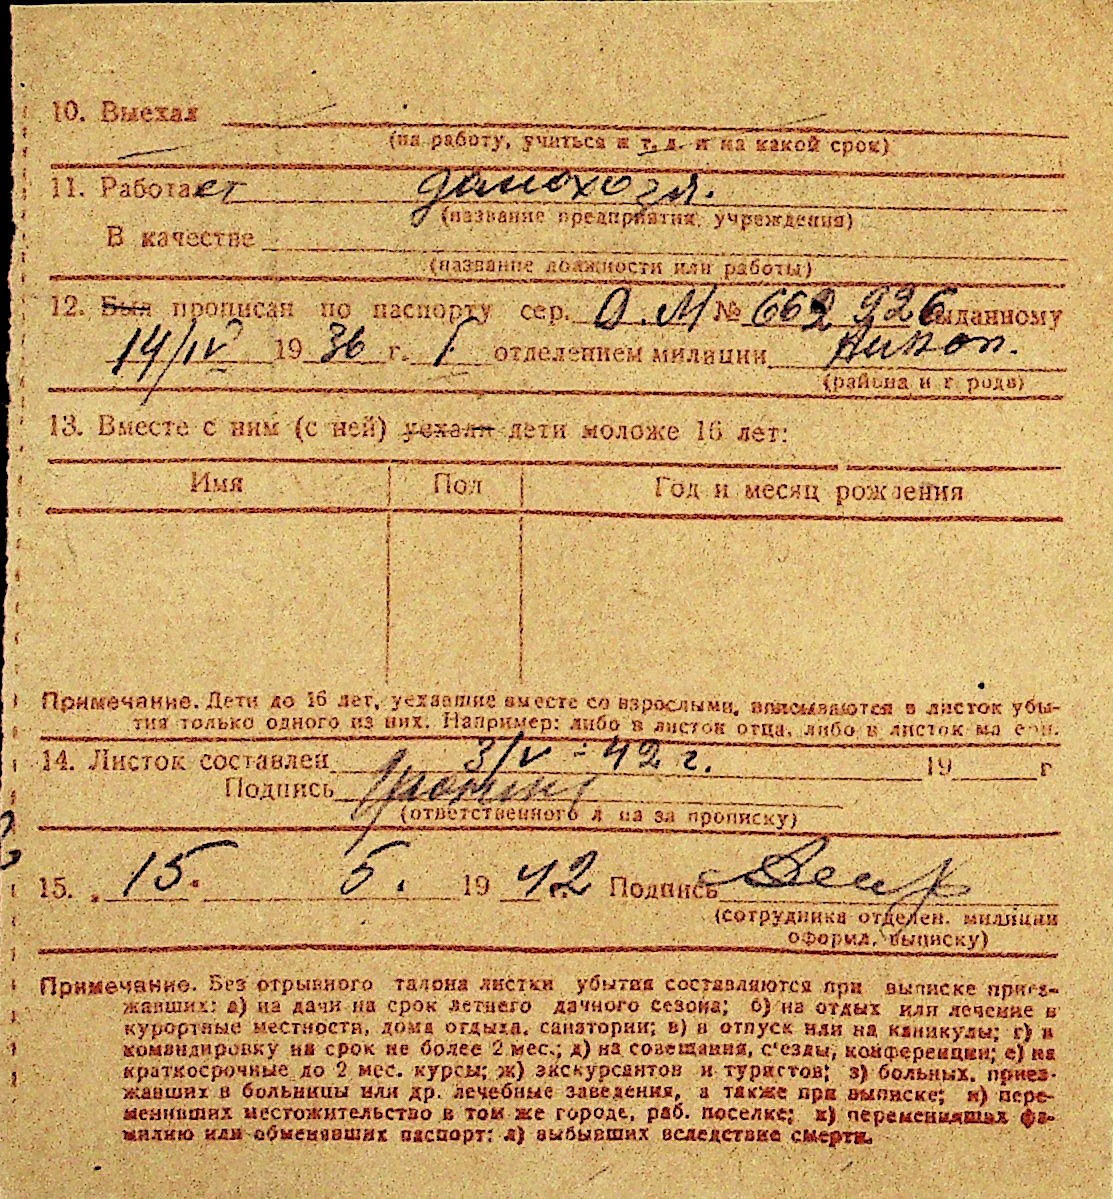 10. Выехал
(на работу, учиться и т. д. и на какой срок)
11. Работает домохоз.
(название предприятия, учреждения)
В качестве
(название должности или работы)
12. Был прописан по паспорту сер. О.М № 662 926 выданному
14/IV 1936 г. I отделением милиции
(района и города)
13. Вместе с ним (с ней) уехали дети моложе 16 лет:
Имя Пол Год и месяц рождения
Примечание. Дети до 16 лет, уехавшие вместе со взрослыми, вписываются в листок убы-
тия только одного из них. Например: либо в листок отца, либо в листок матери.
14. Листок составлен 3/V - 42 г. 19 г
Подпись
(ответственного лица за прописку)
15. 15. 5. 1942 Подпись
(сотрудника отделен. милиции
оформил. выписку)
Примечание. Без отрывного талона листки убытия составляются при выписке приез-
жавших: а) на дачи на срок летнего дачного сезона; б) на отдых или лечение в
курортные местности, дома отдыха, санатории; в) в отпуск или на каникулы; г) в
командировку на срок не более 2 мес.; д) на совещания, съезды, конференции; е) на
краткосрочные до 2 мес. курсы; ж) экскурсантов и туристов; з) больных, приез-
жавших в больницы или др. лечебные заведения, а также при выписке; и) пере-
менивших местожительство в том же городе, раб. поселке; к) переменивших фа-
милию или обменявших паспорт; л) выбывших вследствие смерти.